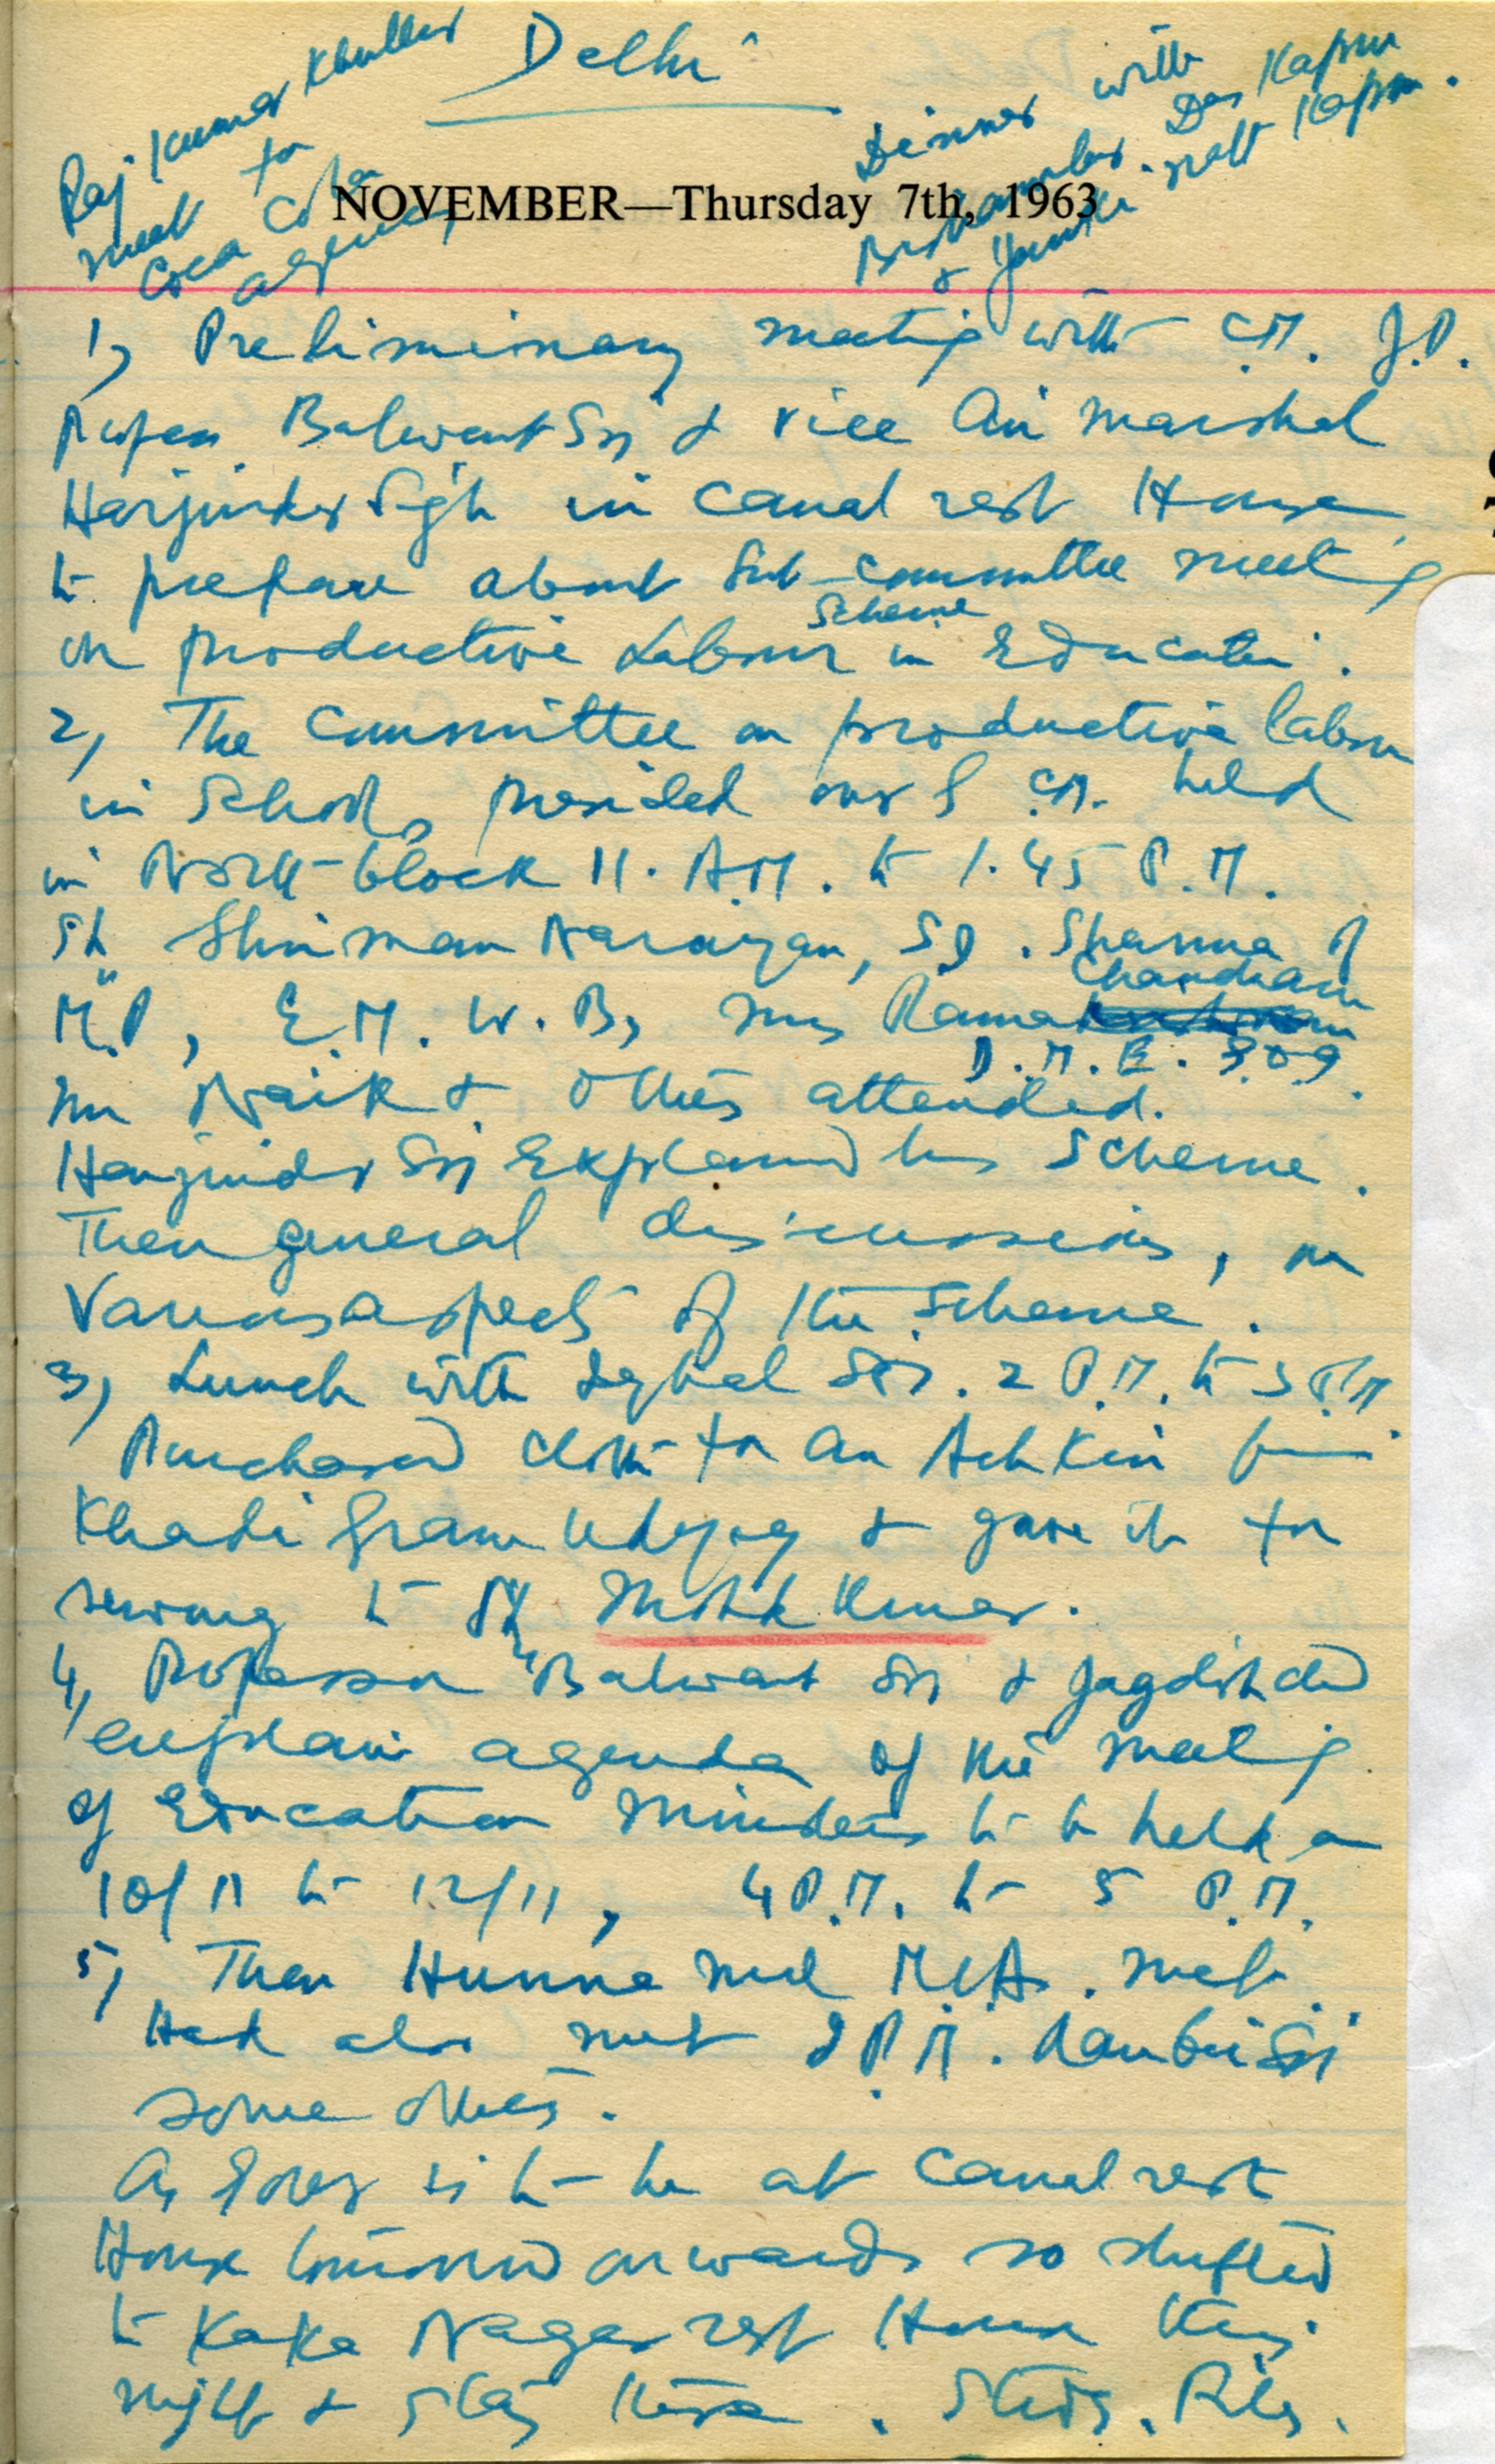 Delhi
Raj Kumar Khullar
meet for
Coca Cola
agency
Dinner with
Bishamber Das Kapur
& Yamuna Natt Kapur.
NOVEMBER—Thursday 7th, 1963
1, Preliminary meeting with C.M. J.D.
Balwant Sn & Vice Air Marshal
Harjinder Sigh in Canal rest House
to prepare about Sub-Committee meeting
on productive Labour Scheme in Education.
2, The Committee on productive labour
in Schools, presided over by C.M. held
in North block 11. A.M. to 1.45 P.M.
Sh Shriman Narayan, S.D. Sharma of
M.P, E.M. W.B, Mrs Rama Chandran
D.M.E.
Mr Naik & others attended.
Harjinder Sn Explained his Scheme.
Then general discussions, on
Various aspects of the Scheme.
3, Lunch with Iqbal Sn. 2 P.M. to 3 P.M.
Purchased cloth for an Achkin from
Khadi Gram Udyog & gave it for
sewing to Sh Mohd Umar.
4, Professor Balwant Sn & Jagdish did
explain agenda of the meeting
of Education Ministers to be held on
10/11 to 12/11, 4 P.M. to 5 P.M.
5, Then Hunna Mul M.L.A. met.
Had also met D.P.M. Ranbir Sn
some others.
As Gover is to be at Canal rest
House tomorrow onwards so shifted
to Kaka Nagar rest House this
night & stay there. Study. Files.